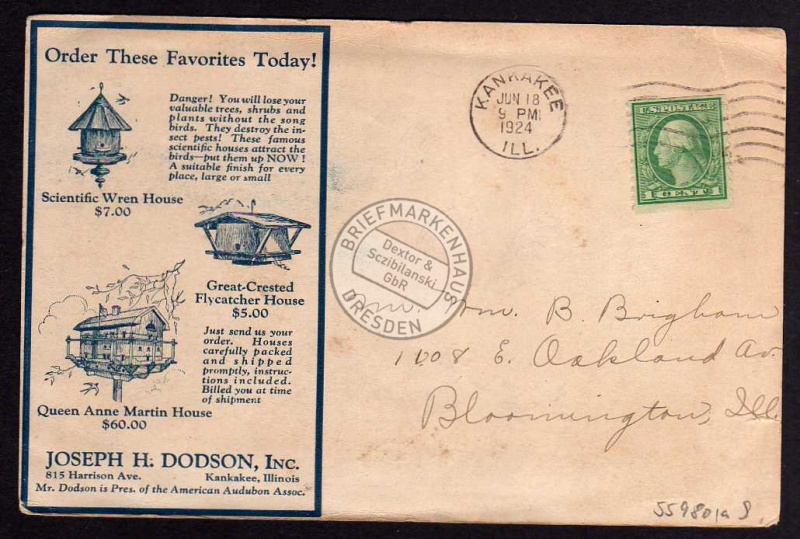 Order These Favorites Today!
Danger! You will lose your
valuable trees, shrubs and
plants without the song
birds. They destroy the in-
sect pests! These famous
scientific houses attract the
birds—put them up NOW!
A suitable finish for every
place, large or small
Scientific Wren House
$7.00
Great-Crested
Flycatcher House
$5.00
Just send us your
order. Houses
carefully packed
and shipped
promptly, instruc-
tions included.
Billed you at time
of shipment
Queen Anne Martin House
$60.00
JOSEPH H. DODSON, INC.
815 Harrison Ave. Kankakee, Illinois
Mr. Dodson is Pres. of the American Audubon Assoc.
KANKAKEE
JUN 18
9 PM
1924
ILL.
U.S. POSTAGE
1 CENT 1
BRIEFMARKENHAUS
Dextor &
Sczibilanski
GbR
DRESDEN
Wm. B. Brigham
1108 E. Oakland Av.
Bloomington, Ill.